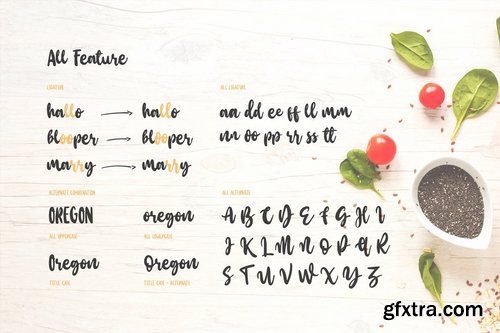 All Feature
LIGATURE
hallo hallo
blooper blooper
marry marry
ALL LIGATURE
aa dd ee ff ll mm
nn oo pp rr ss tt
ALTERNATE COMBINATION
OREGON oregon
ALL UPPERCASE ALL LOWERCASE
Oregon Oregon
TITLE CASE TITLE CASE + ALTERNATE
ALL ALTERNATE
A B C D E F G H I
J K L M N O P Q R
S T U V W X Y Z
gfxtra.com